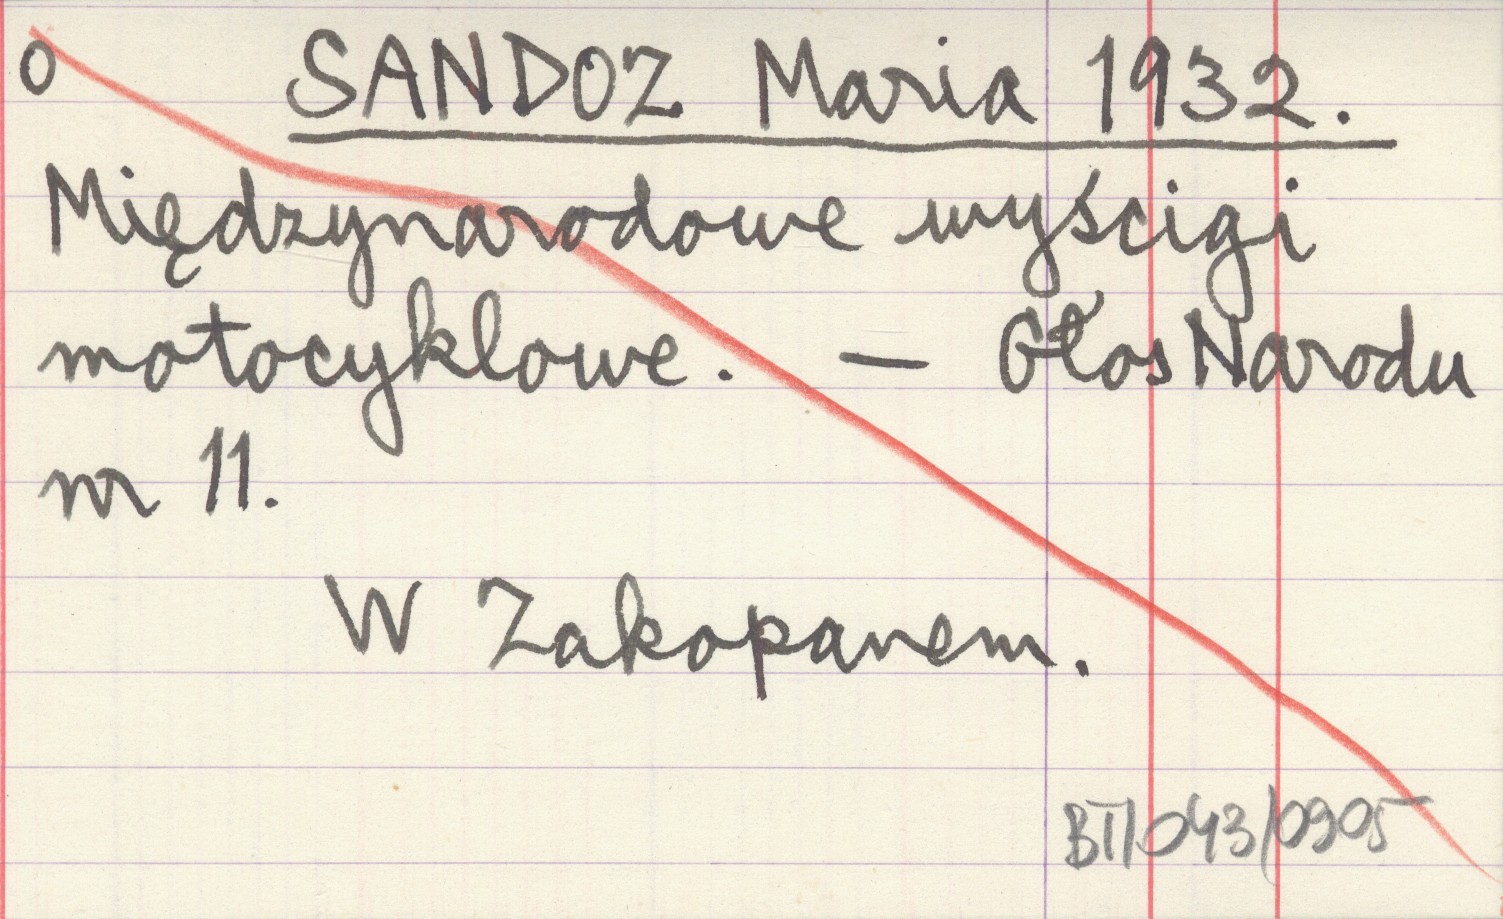 o SANDOZ Maria 1932.
Międzynarodowe wyścigi
motocyklowe. — Głos Narodu
nr 11.
W Zakopanem.
BTI/043/0905